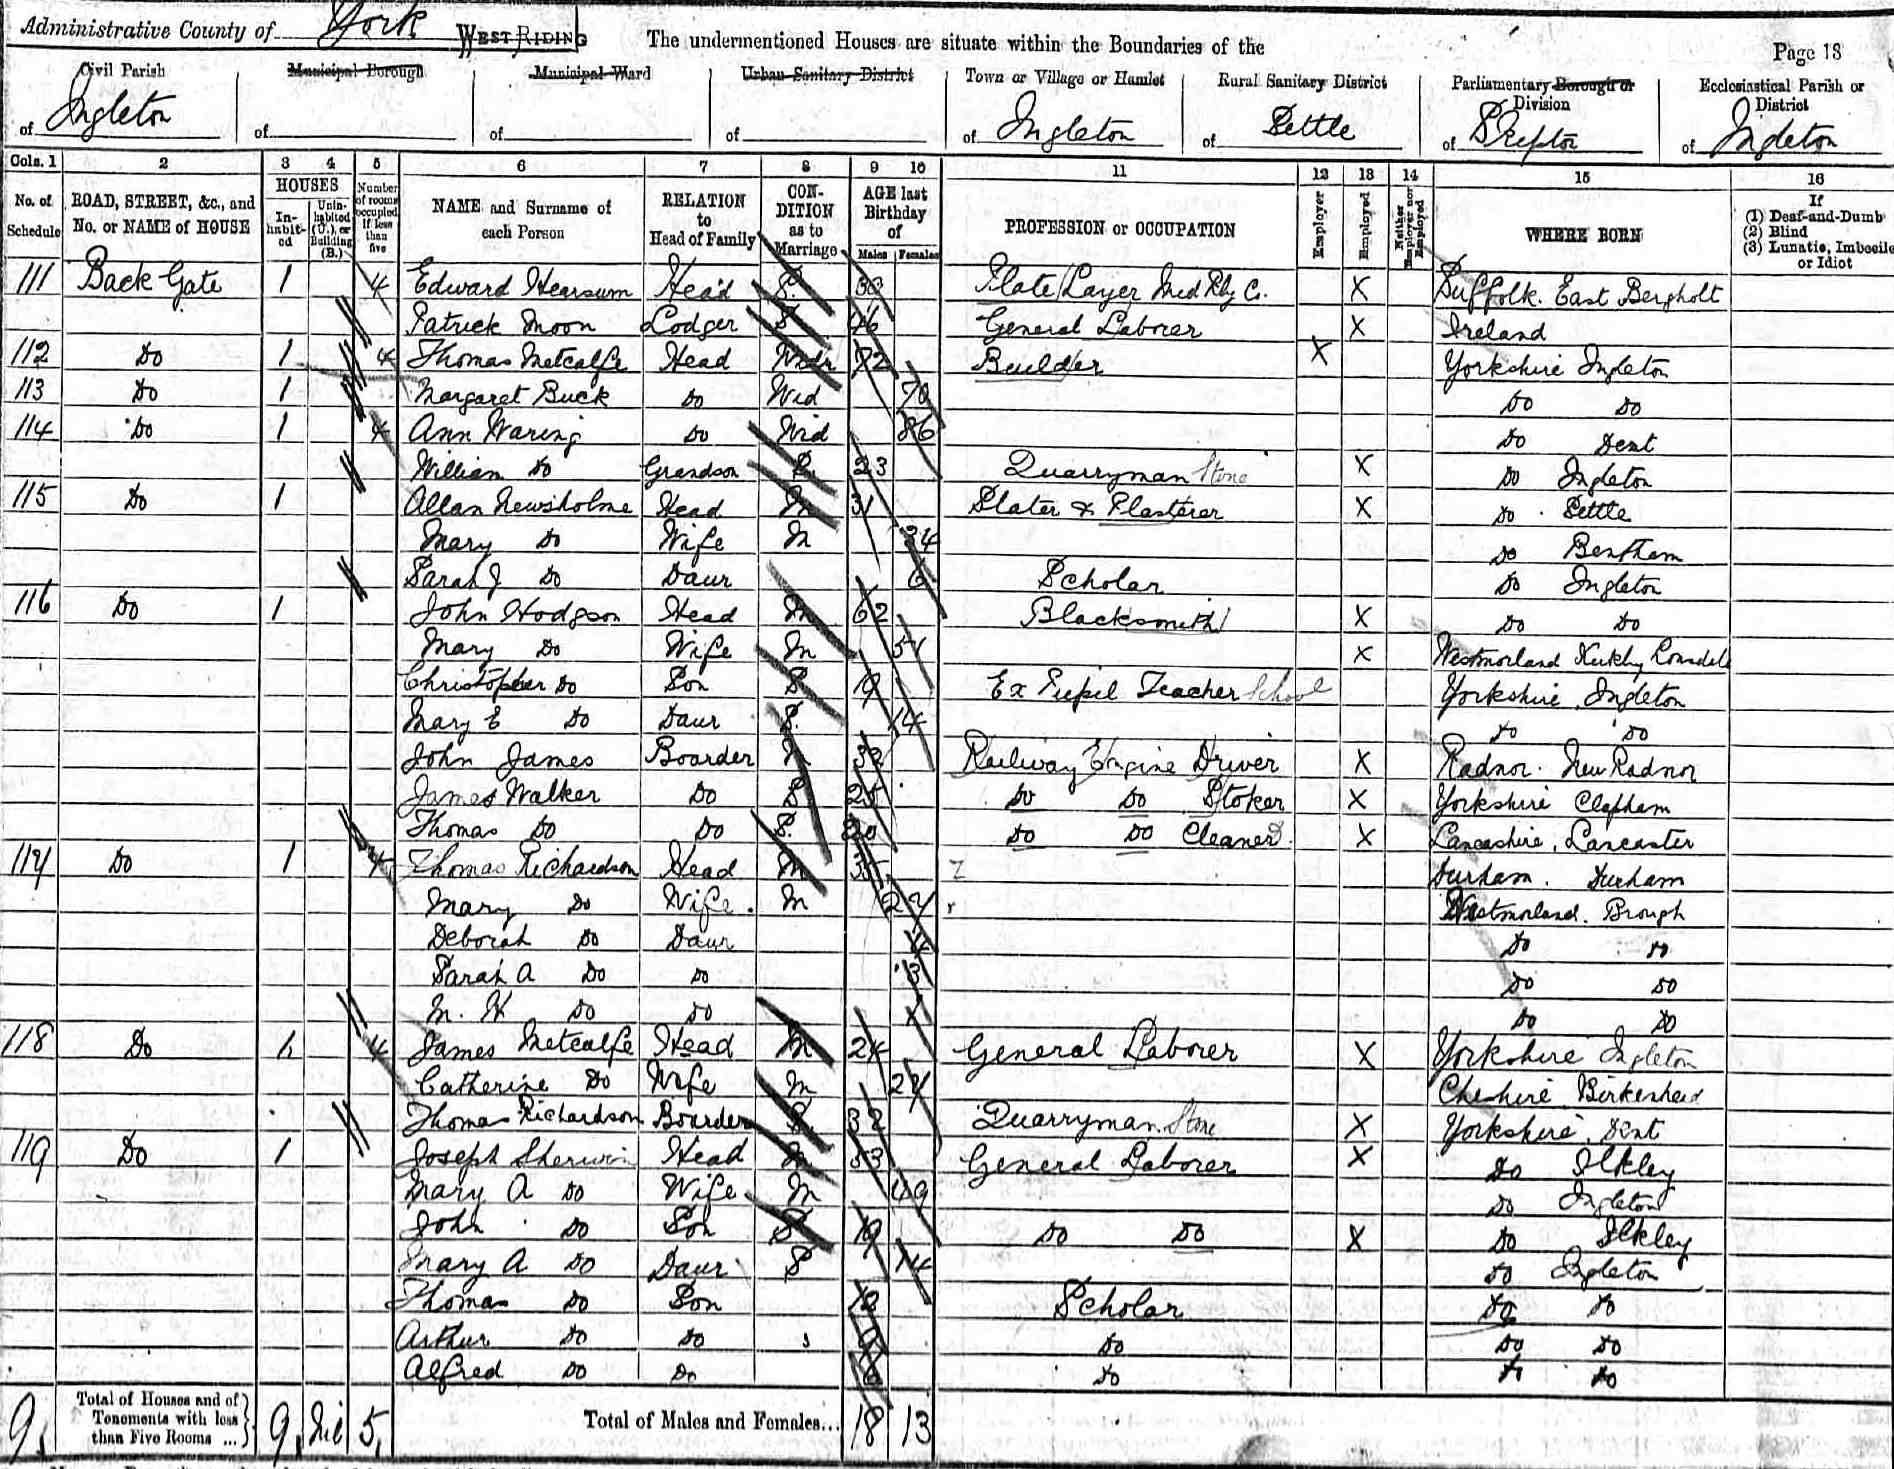 Administrative County of York WEST RIDING The undermentioned Houses are situate within the Boundaries of the Page 13
Civil Parish Municipal Borough Municipal Ward Urban Sanitary District Town or Village or Hamlet Rural Sanitary District Parliamentary Borough or Division Ecclesiastical Parish or District
of Ingleton of of of of Ingleton of Settle of Skipton of Ingleton
Cols. 1 2 3 4 5 6 7 8 9 10 11 12 13 14 15 16
No. of Schedule ROAD, STREET, &c., and No. or NAME of HOUSE HOUSES Inhabited Uninhabited (U.), or Building (B.) Number of rooms occupied if less than five NAME and Surname of each Person RELATION to Head of Family CONDITION as to Marriage AGE last Birthday of Males Females PROFESSION or OCCUPATION Employer Employed Neither Employer nor Employed WHERE BORN If (1) Deaf-and-Dumb (2) Blind (3) Lunatic, Imbecile or Idiot
111 Back Gate 1 4 Edward Hearsum Head S. Plate Layer Mid Rly Co. X Suffolk. East Bergholt
Patrick Moon Lodger S 46 General Laborer X Ireland
112 Do 1 4 Thomas Metcalfe Head Widr 72 Builder X Yorkshire Ingleton
113 Do 1 Margaret Buck Do Wid 70 Do Do
114 Do 1 4 Ann Waring Do Wid 86 Do Dent
William Do Grandson S 23 Quarryman Stone X Do Ingleton
115 Do 1 Allan Newsholme Head M 31 Slater & Plasterer X Do Settle
Mary Do Wife M 34 Do Bentham
Sarah J Do Daur 6 Scholar Do Ingleton
116 Do 1 John Hodgson Head M 62 Blacksmith X Do Do
Mary Do Wife M X Westmorland Kirkby Lonsdale
Christopher Do Son S 19 Ex Pupil Teacher School Yorkshire Ingleton
Mary E Do Daur S. 14 Do Do
John James Boarder 32 Railway Engine Driver X Radnor. New Radnor
James Walker Do S 25 Do Do Stoker X Yorkshire Clapham
Thomas Do Do S. 20 Do Do Cleaner X Lancashire, Lancaster
117 Do 1 4 Thomas Richardson Head M 35 Durham. Durham
Mary Do Wife. M 27 Westmorland. Brough
Deborah Do Daur Do Do
Sarah A Do Do 3 Do Do
M. H Do Do Do Do
118 Do 1 4 James Metcalfe Head M 24 General Laborer X Yorkshire Ingleton
Catherine Do Wife M 27 Cheshire Birkenhead
Thomas Richardson Boarder S. 32 Quarryman Stone X Yorkshire. Dent
119 Do 1 Joseph Sherwin Head M 53 General Laborer X Do Ilkley
Mary A Do Wife M 49 Do Ingleton
John Do Son S 19 Do Do X Do Ilkley
Mary A Do Daur S 14 Do Ingleton
Thomas Do Son 12 Scholar Do Do
Arthur Do Do 9 Do Do Do
Alfred Do Do 6 Do Do Do
9. Total of Houses and of Tenements with less than Five Rooms ... 9. Nil 5. Total of Males and Females... 18 13